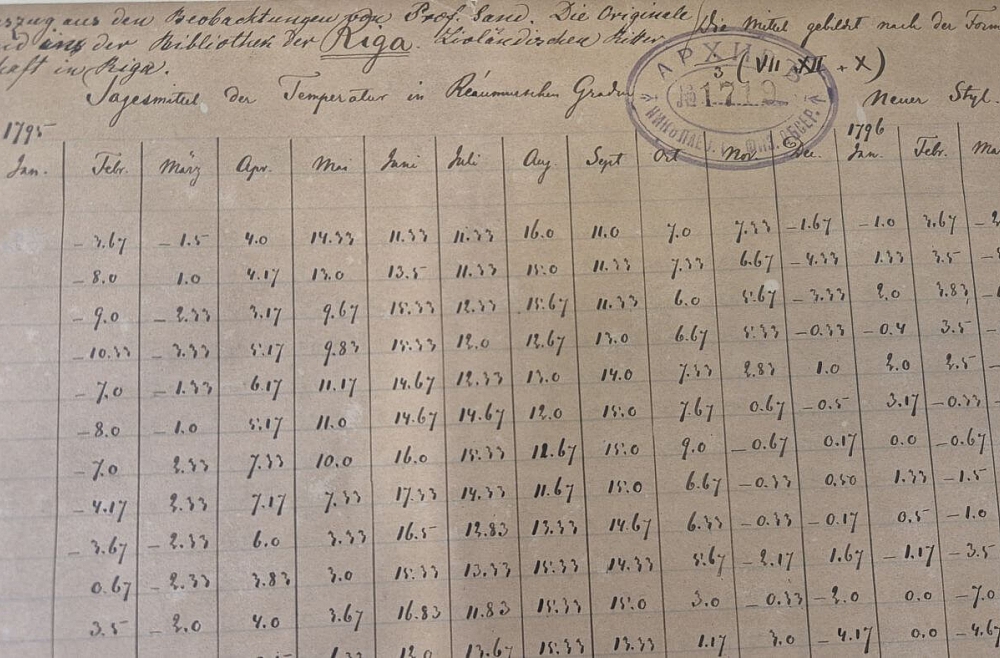 aus den Beobachtungen von Prof. Sand. Die Originale
in der Bibliothek der Riga. Livländischen Ritter
schaft in Riga.
Die Mittel gebildet nach der Form
3 (VII + XII + X)
Tagesmittel der Temperatur in Réaumurschen Graden
Neuer Styl.
АРХИВЪ
№ 1719
НИКОЛАЕ. ФИЗ. ОБСЕР.
1795 1796
Jan. Febr. März Apr. Mai Juni Juli Aug. Sept Oct Nov. Dec. Jan. Febr. Ma
- 3.67 - 1.5 4.0 14.33 11.33 11.33 16.0 11.0 7.0 7.33 - 1.67 - 1.0 3.67
- 8.0 1.0 4.17 13.0 13.5 11.33 15.0 11.33 7.33 6.67 - 4.33 1.33 3.5
- 9.0 - 2.33 3.17 9.67 15.33 12.33 15.67 11.33 6.0 5.67 - 3.33 2.0 3.83
- 10.33 - 3.33 5.17 9.83 15.33 12.0 12.67 13.0 6.67 5.33 - 0.33 - 0.4 3.5
- 7.0 - 1.33 6.17 11.17 14.67 12.33 13.0 14.0 7.33 2.83 1.0 2.0 2.5
- 8.0 - 1.0 5.17 11.0 14.67 14.67 12.0 15.0 7.67 0.67 - 0.5 3.17 - 0.33
- 7.0 2.33 7.33 10.0 16.0 15.33 12.67 15.0 9.0 - 0.67 0.17 0.0 - 0.67
- 4.17 2.33 7.17 7.33 17.33 14.33 11.67 15.0 6.67 - 0.33 0.50 1.33 - 1.5
- 3.67 - 2.33 6.0 3.33 16.5 12.83 13.33 14.67 6.33 - 0.33 - 0.17 0.5 - 1.0
0.67 - 2.33 3.83 3.0 15.33 13.33 15.33 14.33 5.67 - 2.17 1.67 - 1.17 - 3.5
3.5 - 2.0 4.0 3.67 16.83 11.83 15.33 15.0 3.0 - 0.33 - 2.0 0.0 - 7.0
1.33 12.0 13.67 15.33 13.33 1.17 3.0 - 4.17 0.0 - 4.67